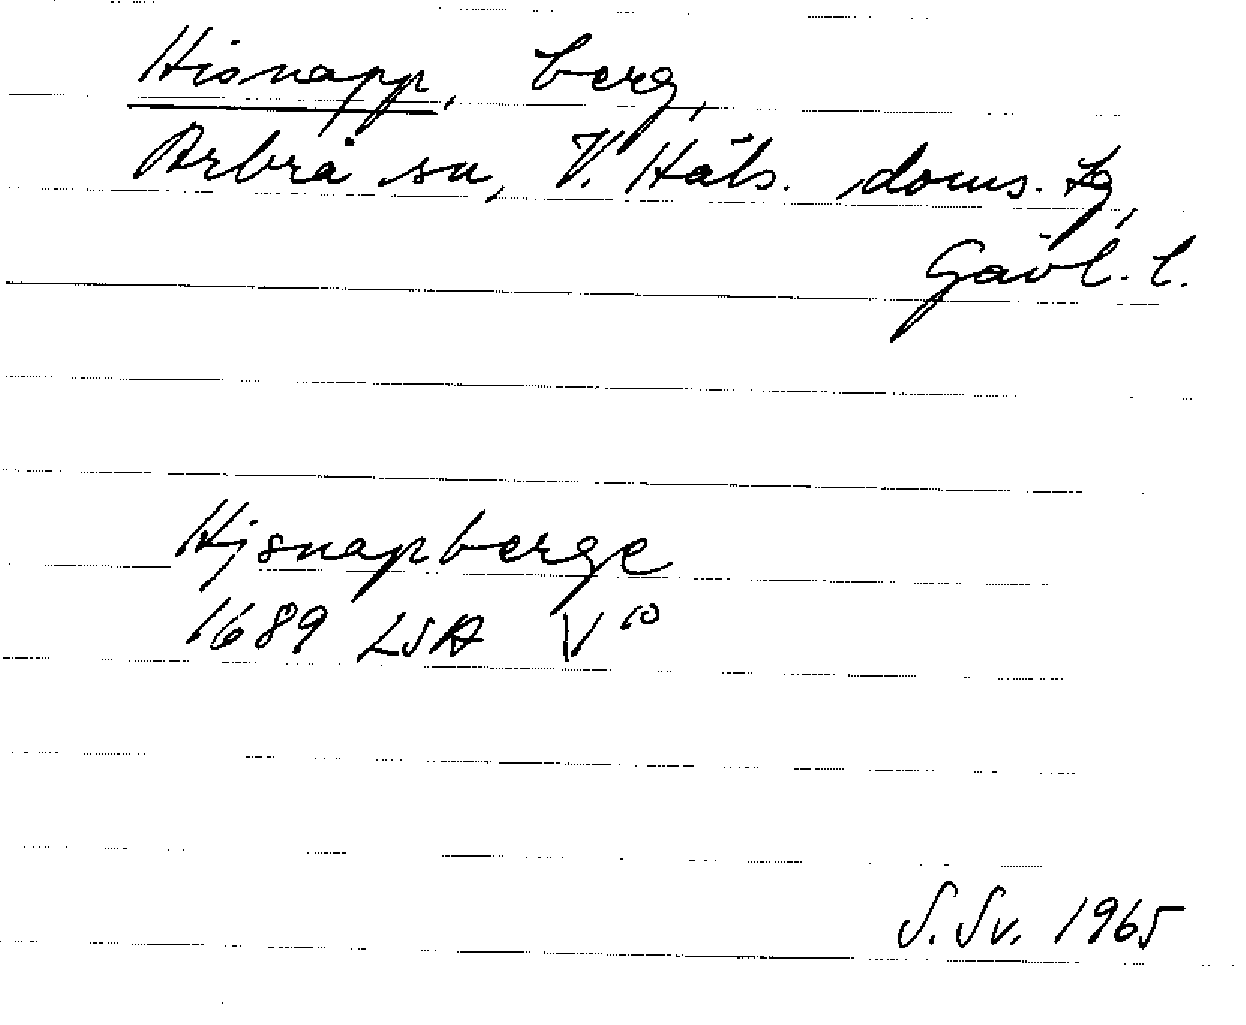 Hisnapp, berg,
Arbrå sn, V. Häls. doms. tg,
Gävl. l.
Hjsnapberge
1689 LSA V 10
S. Sv. 1965